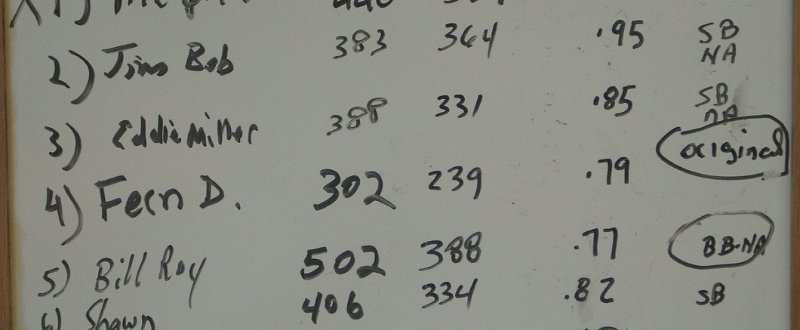 2) Jim Bob 383 364 .95 SB NA
3) Eddie Miller 388 331 .85 SB NA
4) Fern D. 302 239 .79 original
5) Bill Roy 502 388 .77 BB-NA
6) Shawn 406 334 .82 SB